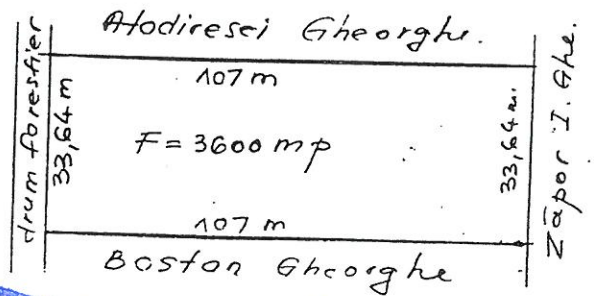 Atodiresei Gheorghe.
107 m
drum forestier
33,64 m
F = 3600 mp
33,64 m.
Zăpor I. Ghe.
107 m
Boston Gheorghe